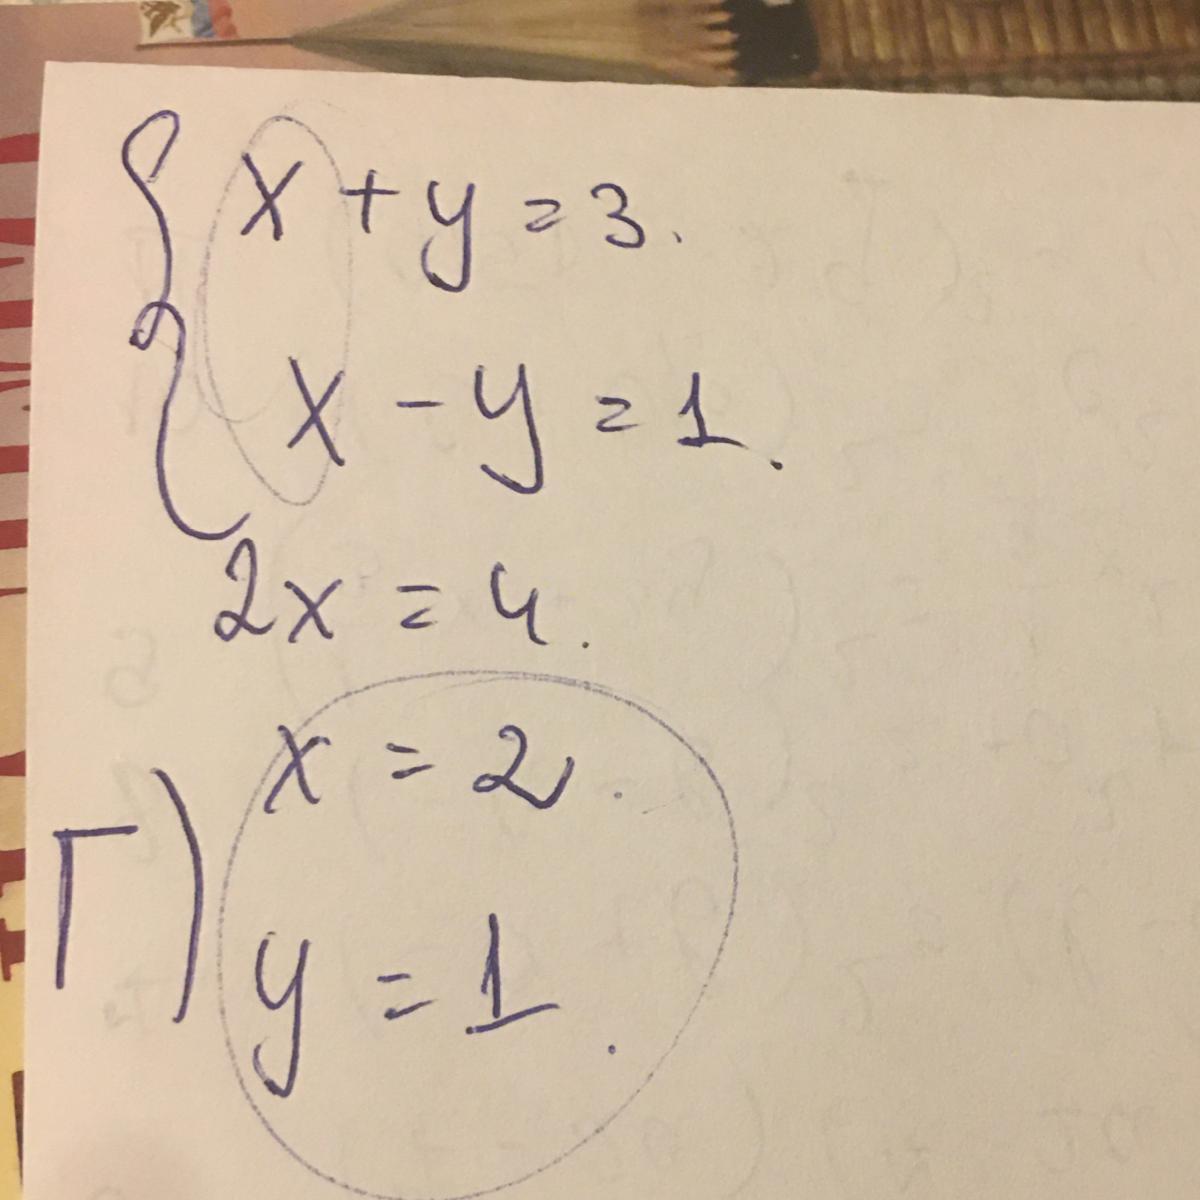 { x + y = 3.
x - y = 1.
2x = 4.
x = 2.
Г) y = 1.